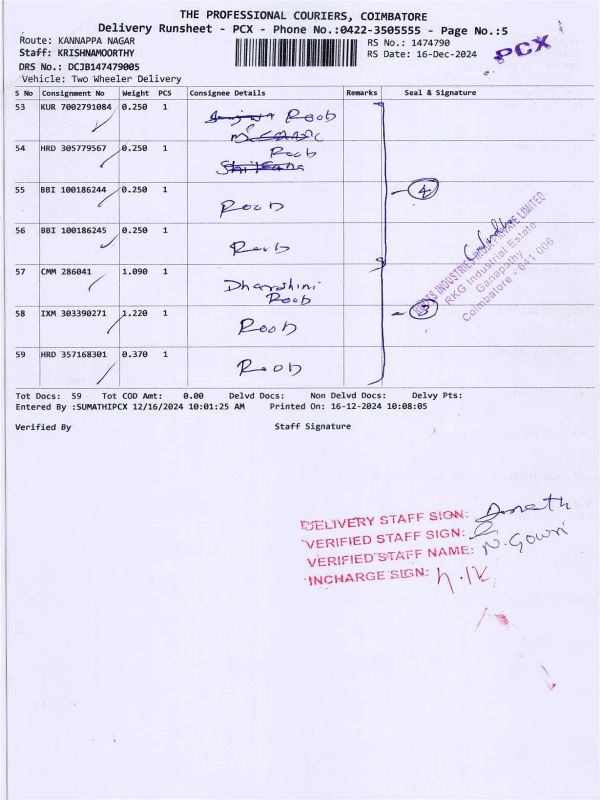 THE PROFESSIONAL COURIERS, COIMBATORE
Delivery Runsheet - PCX - Phone No.:0422-3505555 - Page No.:5
Route: KANNAPPA NAGAR
RS No.: 1474790
PCX
Staff: KRISHNAMOORTHY
RS Date: 16-Dec-2024
DRS No.: DCJB147479005
Vehicle: Two Wheeler Delivery
S No Consignment No Weight PCS Consignee Details Remarks Seal & Signature
53 KUR 7002791084 0.250 1 Roob
54 HRD 305779567 0.250 1 Roob
55 BBI 100186244 0.250 1 Roob
4
56 BBI 100186245 0.250 1 Roob
57 CMM 286041 1.090 1 Dharshini
Roob
58 IXM 303390271 1.220 1 Roob
3
59 HRD 357168301 0.370 1 Roob
INDUSTRIES PRIVATE LIMITED
RKG Industrial Estate
Ganapathy
Coimbatore - 641 006
Tot Docs: 59 Tot COD Amt: 0.00 Delvd Docs: Non Delvd Docs: Delvy Pts:
Entered By :SUMATHIPCX 12/16/2024 10:01:25 AM Printed On: 16-12-2024 10:08:05
Verified By Staff Signature
DELIVERY STAFF SIGN:
VERIFIED STAFF SIGN:
VERIFIED STAFF NAME: N. Gowri
INCHARGE SIGN: